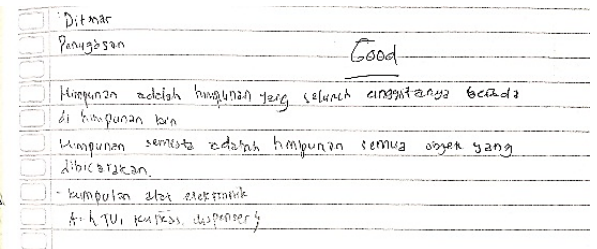 Ditmar
Penugasan
Good
Himpunan adalah himpunan yang seluruh anggotanya berada
di himpunan lain
Himpunan semesta adalah himpunan semua objek yang
dibicarakan.
- kumpulan alat elektronik
A = { TV, kulkas, dispenser }